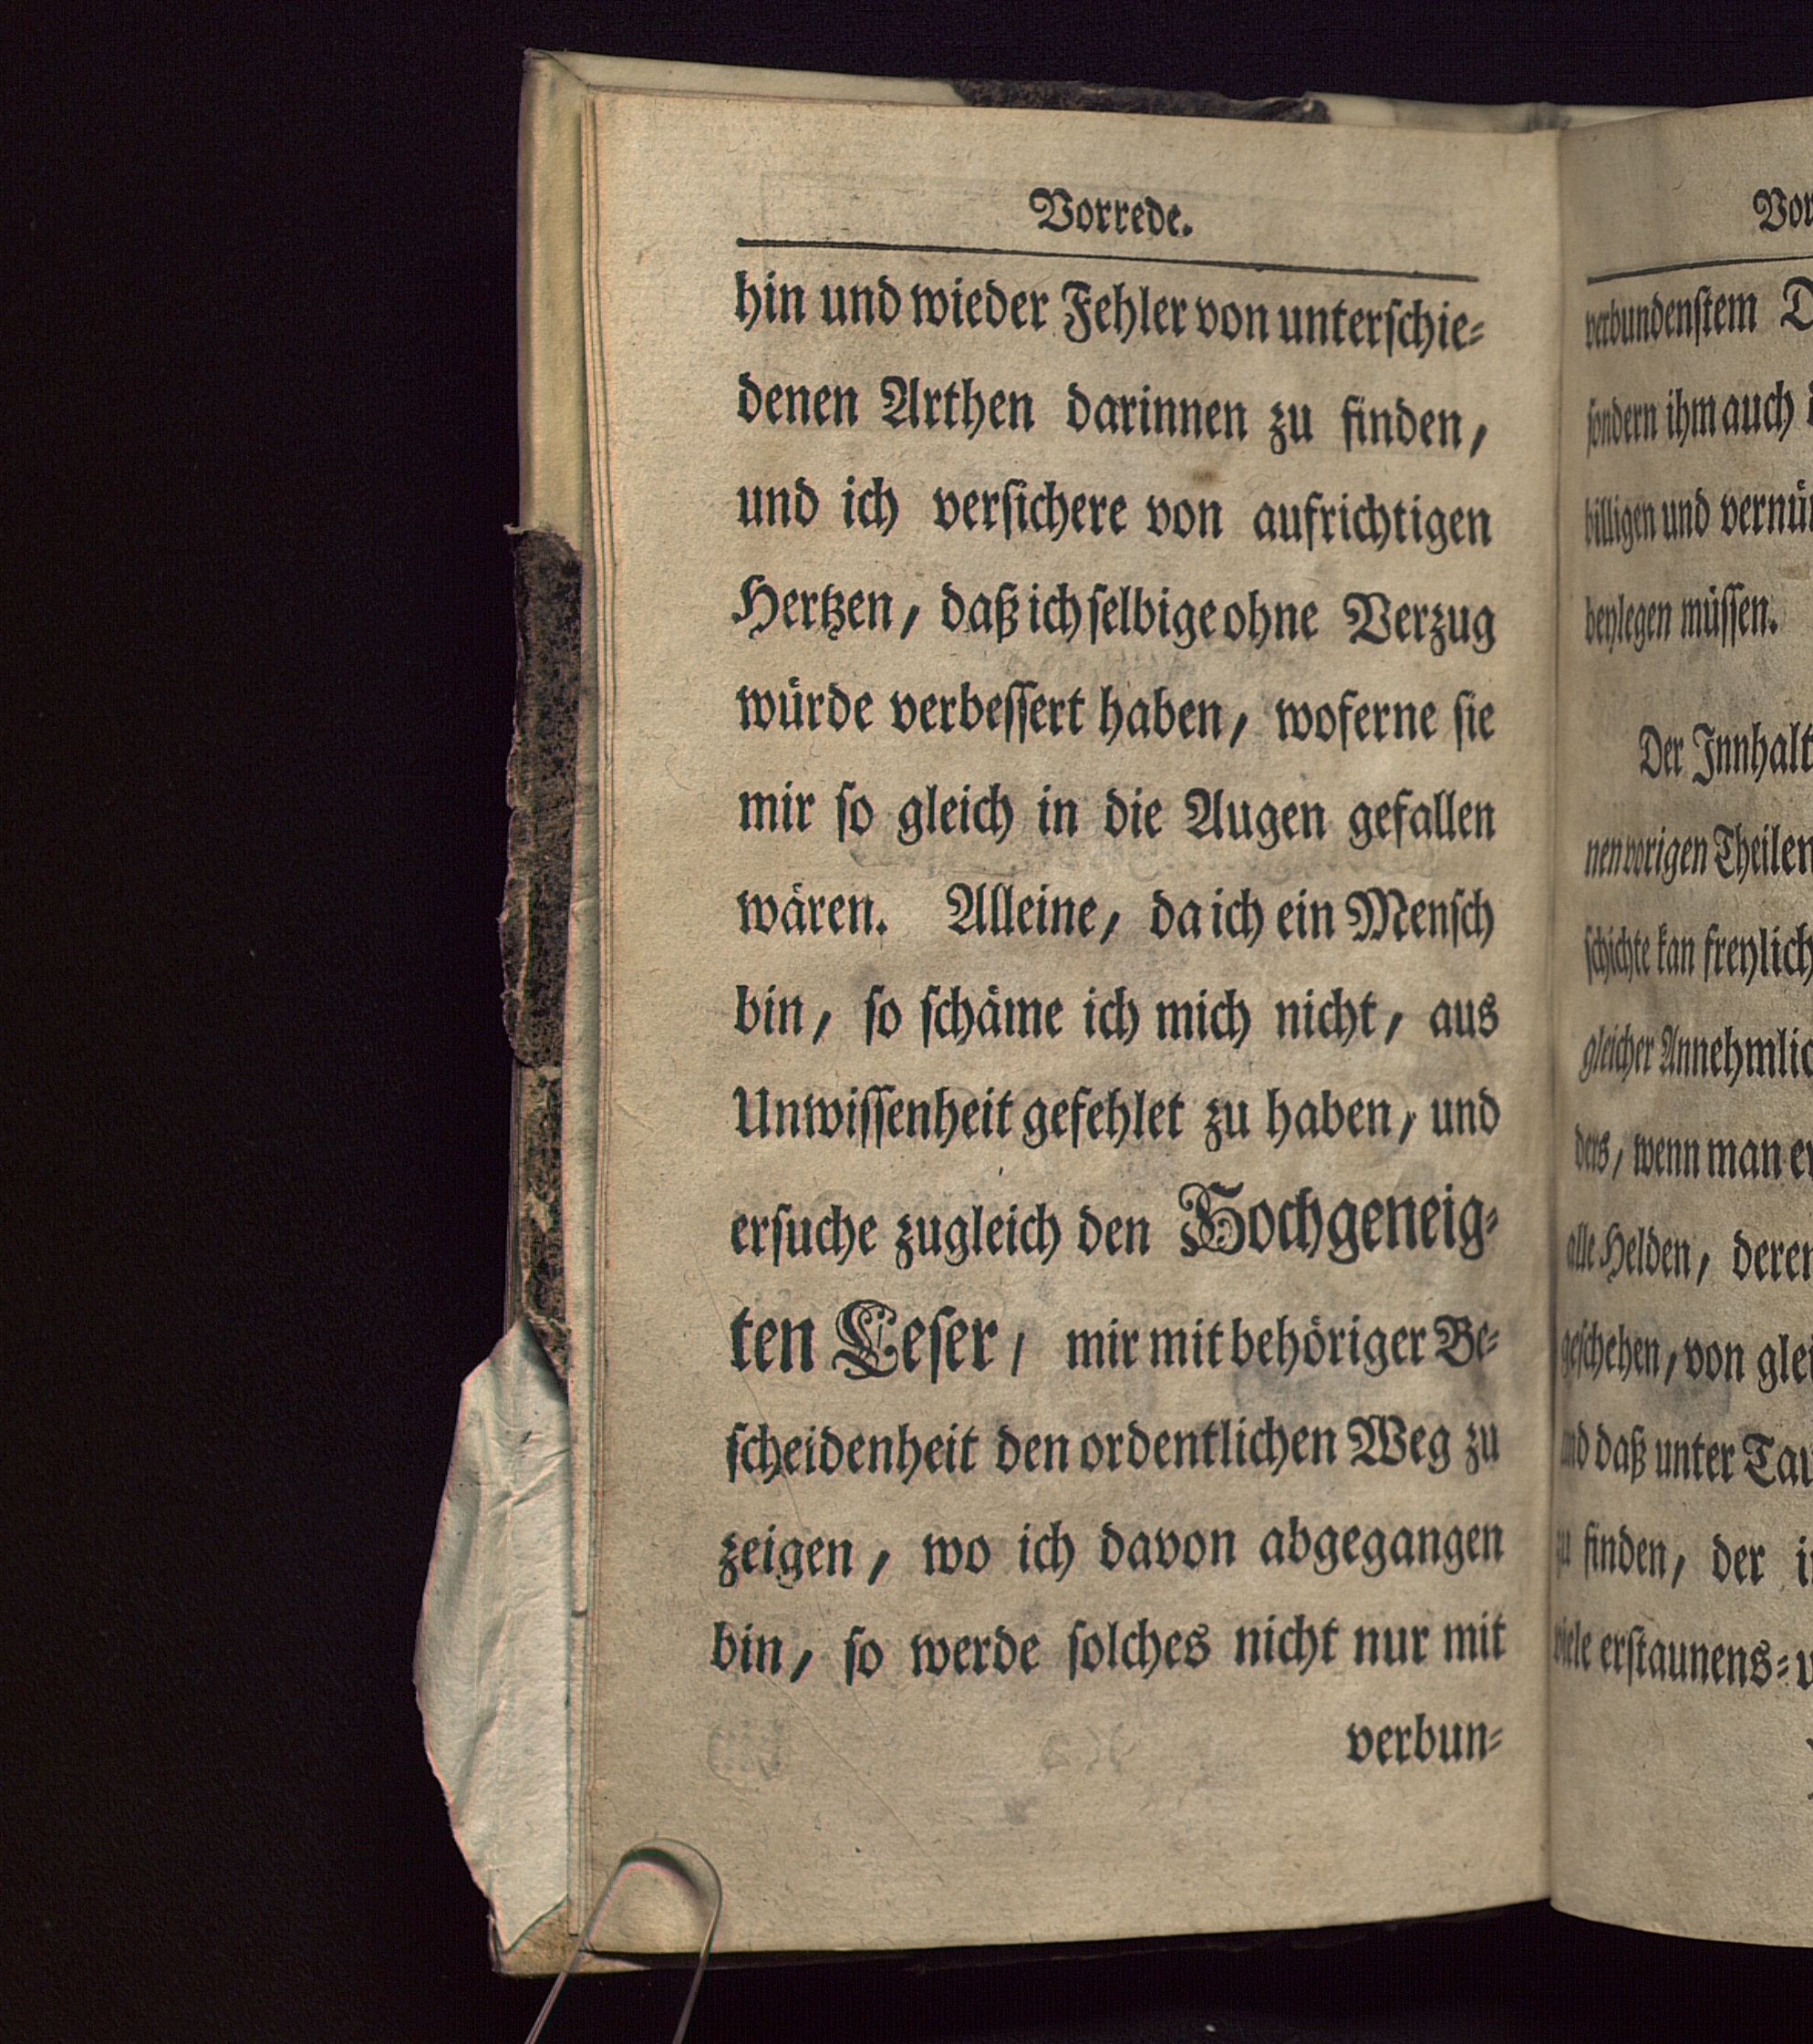 Vorrede.
hin und wieder Fehler von unterschie⸗
denen Arthen darinnen zu finden,
und ich versichere von aufrichtigen
Hertzen, daß ich selbige ohne Verzug
würde verbessert haben, woferne sie
mir so gleich in die Augen gefallen
wären. Alleine, da ich ein Mensch
bin, so schäme ich mich nicht, aus
Unwissenheit gefehlet zu haben, und
ersuche zugleich den Hochgeneig⸗
ten Leser, mir mit behöriger Be⸗
scheidenheit den ordentlichen Weg zu
zeigen, wo ich davon abgegangen
bin, so werde solches nicht nur mit
verbun⸗
verbundenstem
sondern ihm auch
billigen und
beylegen müssen.
Der Innhalt
nen vorigen Theilen
schichte kan freylich
gleicher
ders, wenn man
alle Helden, deren
geschehen, von
und daß unter
zu finden, der
viele erstaunens⸗